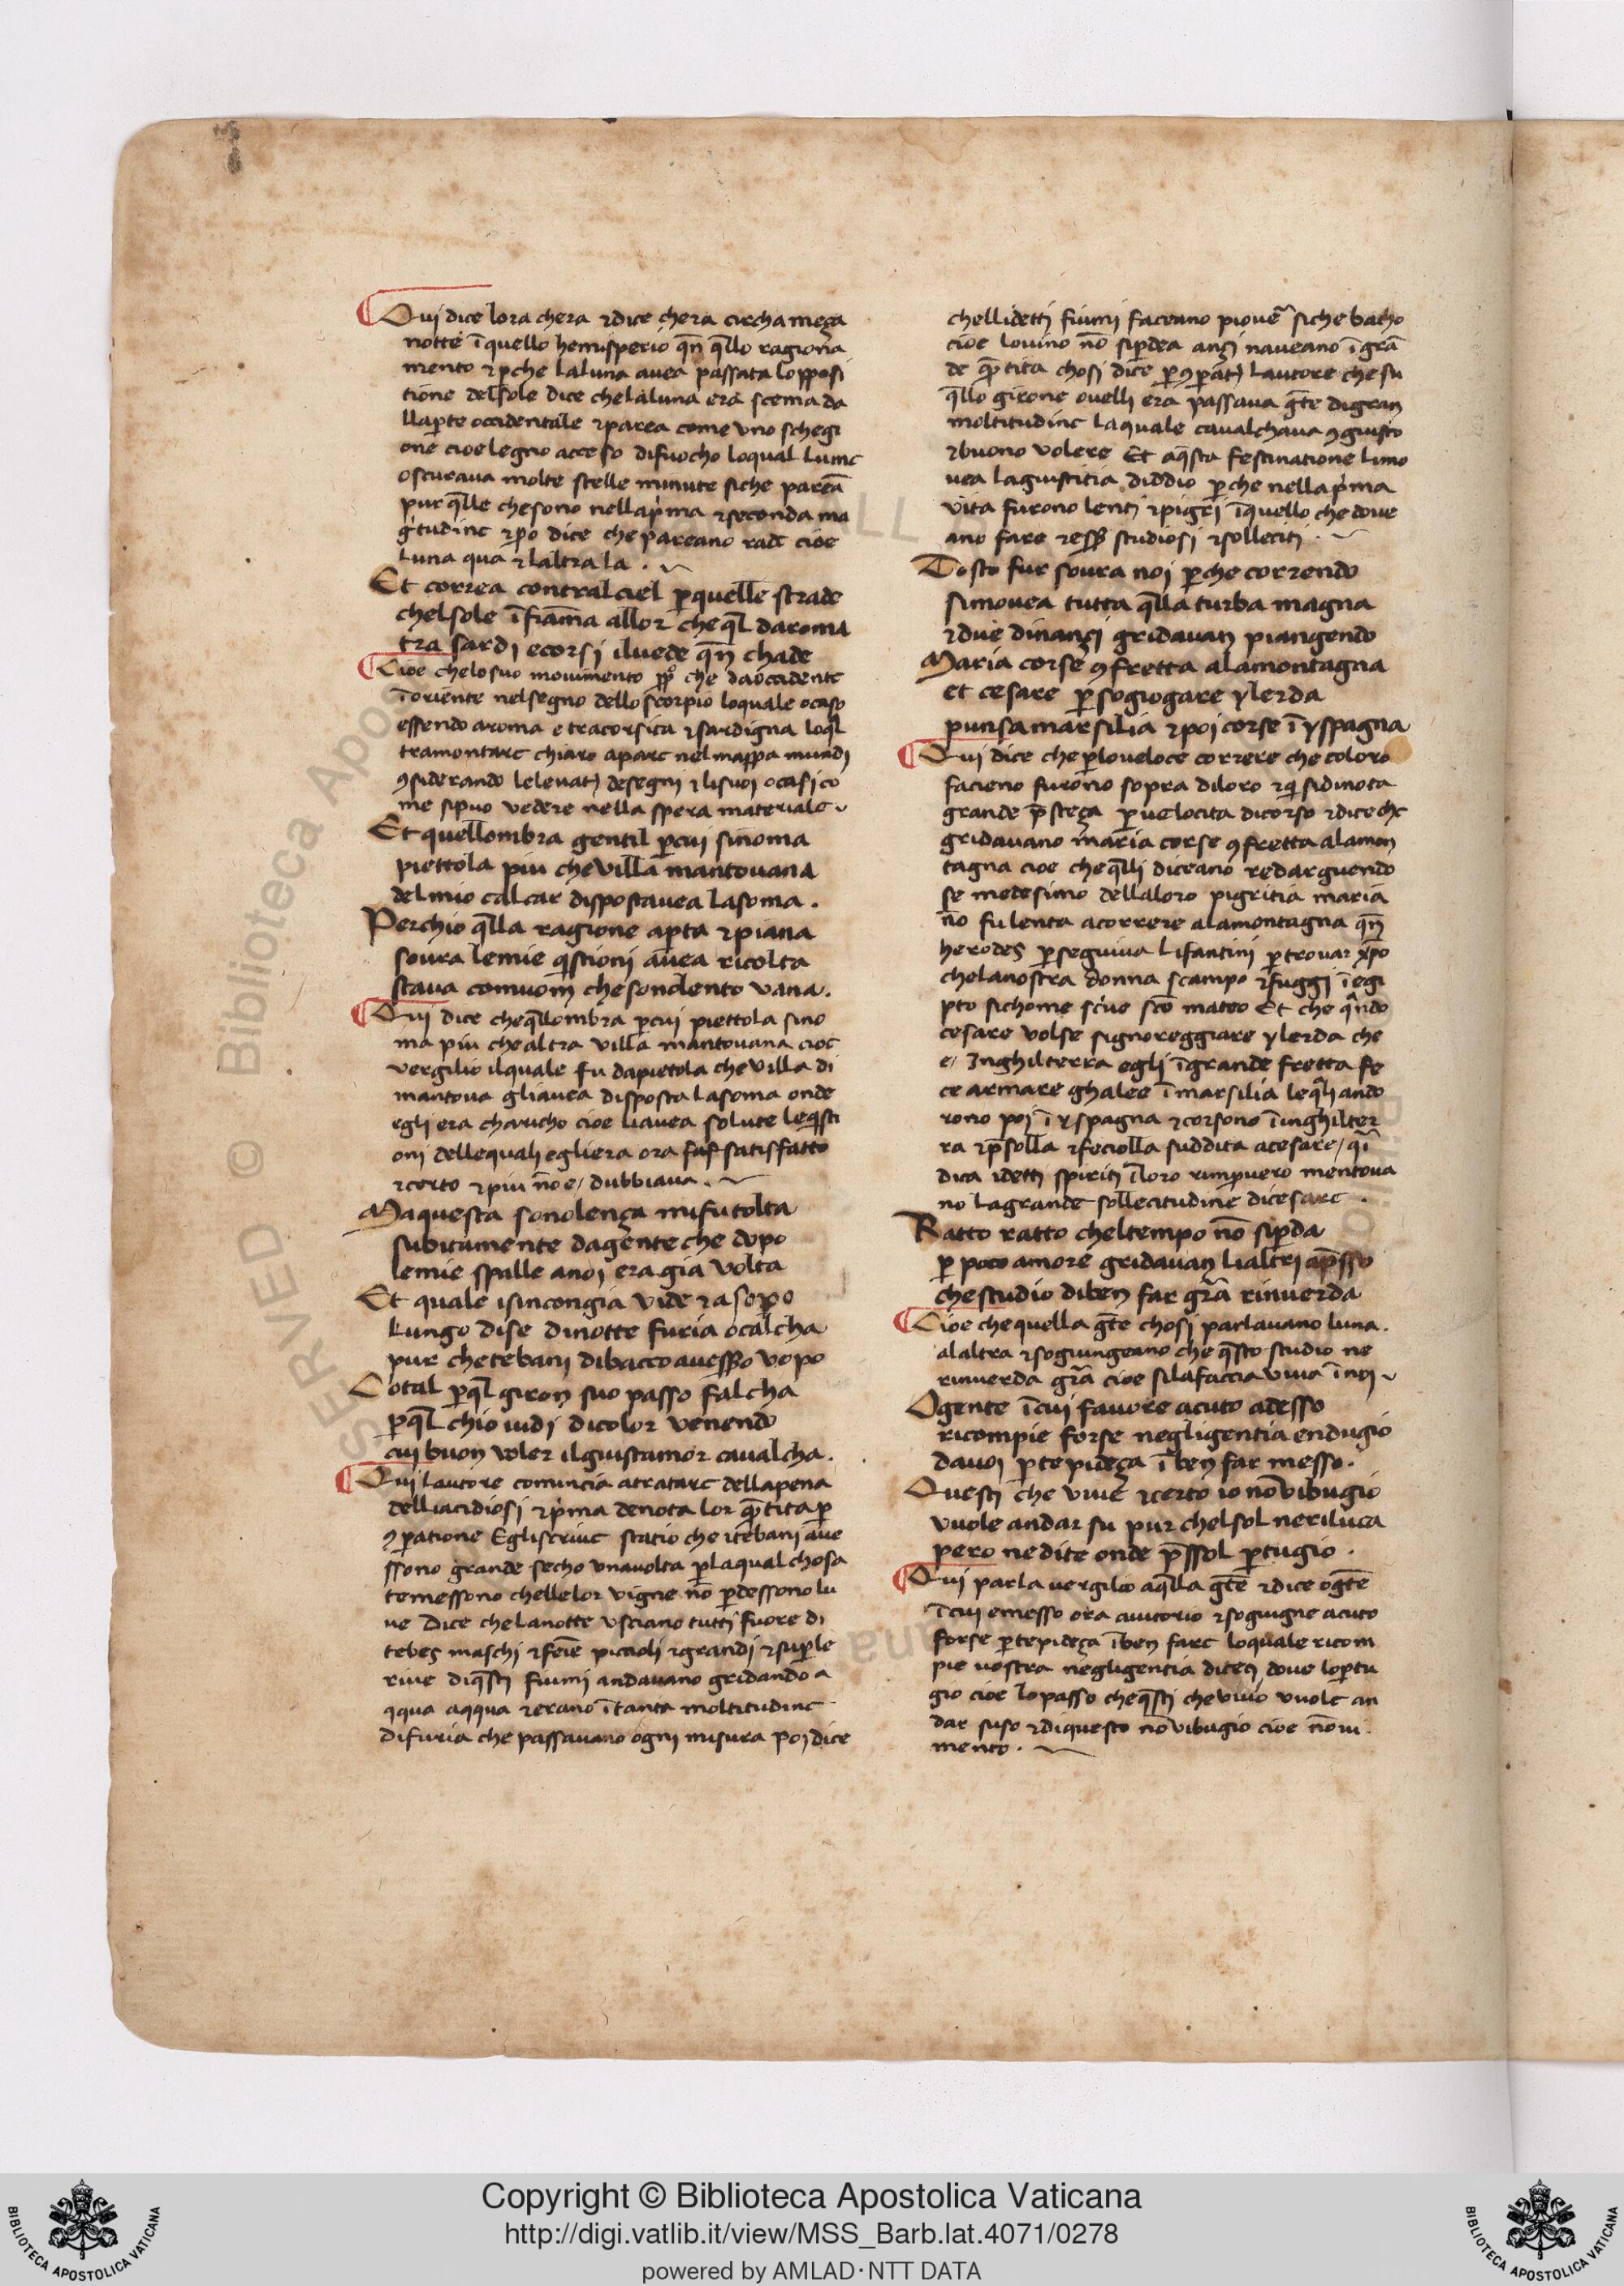 Qui dice lora chera ⁊dice chera circhameça
notte ī quello hemisperio qn̄ q̄llo ragiona
mento ⁊ꝑche laluna auea passata lopposi
tione delsole dice chelaluna era scema da
llaꝑte occidentale ⁊parea come uno schegi
one cioelegno acceso difuocho loqual lume
oscuraua molte stelle minute siche pareā
pur q̄lle chesono nellap̄ma ⁊seconda ma
g̅tudine ⁊ꝑo dice che pareano rade cioe
luna qua ⁊laltra la .
Et correa contralciel ꝑquelle strade
chelsole īfiāma allor cheq̄l daroma
tra sardi ecorsi iluede qn̄ chade
Cioe chelosuo mouimento ꝓpo che daoccidente
ī oriente nelsegno dello scorpio loquale ocaso
essendo aroma etracorsica ⁊sardigna loq̄l
tramontare chiaro apare nelmappa mundi
ꝯsiderando leleuatj desegni ⁊lisuoi ocasi co
me sipuo vedere nella spera materiale
Et quellombra gentil ꝑcui sinoma
piettola piu cheuilla mantouana
delmio calcar dispostauea lasoma .
Perchio q̄lla ragione aꝑta ⁊piana
soura lemie q̄stioni auea ricolta
staua comuom chesonolento vana.
Qui dice cheq̄llombra ꝑcui piettola sino
ma piu chealtra villa mantouana cioe
vergilio ilquale fu dapietola cheuilla di
mantoua gliauea disposta lasoma onde
egli era charicho cioe liauea solute leq̄sti
oni dellequali egliera ora saf satisfatto
⁊certo ⁊piu nō e/ dubbiaua .
Maquesta sonolença mifutolta
subitamente dagente che dopo
lemie spalle anoj era gia volta
Et quale isincongia vide ⁊asopo
lungo dise dinotte furia ocalcha
pur chetebani dibacco auesseo vopo
Cotal ꝑq̄l giron suo passo falcha
ꝑq̄l chio uidi dicolor venendo
cui buon voler ilgiustamor caualcha .
Qui lautore comincia atratare dellapena
delliacidiosi ⁊p̄ma denota lor quātita ꝑ
ꝯꝑatione Egliscriue statio che itebani aue
ssono grande secho unauolta ꝑlaqual chosa
temessono chellelor vigne nō ꝑdessono lu
ue Dice chelanotte vsciano tutti fuore di
tebes maschi ⁊feīe piccioli ⁊grandi ⁊suꝑle
riue diq̄sti fiumi andauano gridando a
qqua aqqua ⁊erano ītanta moltitudine
difuria che passauano ogni misura poj dice
chellidetti fiumi faceano piouer̄ siche bacho
cioe louino nō siꝑdea anzi naueano ī grā
de quātita chosi dice ꝑꝯꝑatj lautore chesu
q̄llo girone ouelli era passaua gēte digran
moltitudine laquale caualchaua ꝯgiusto
⁊buono volere Et aq̄sta festinatione limo
uea lagiustitia diddio ꝑche nellap̄ma
vita furono lenti ⁊pigri īquello che doue
ano fare ⁊esser̄ studiosi ⁊solleciti .
Tosto fur soura noi ꝑche correndo
simouea tutta q̄lla turba magna
⁊due dinanzi gridauan piangendo
Maria corse ꝯfretta alamontagna
et cesare ꝑsogiogare ylerda
punsamarsilia ⁊poi corse īyspagna
Qui dice che ꝑloueloce correre che coloro
facieno furono sopra diloro ⁊qui sidinota
grande p̄steça ꝑuelocita dicorso ⁊dice che
gridauano maria corse ꝯfretta alamon
tagna cioe cheq̄lli diceano redarguendo
se medesimo dellaloro pigritia maria
nō fulenta acorrere alamontagna qn̄
herodes ꝑseguiua lifantini ꝑtrouar xp̄o
chelanostra donna scampo ⁊fuggi ī egi
pto sichome sc̄ue sc̄o mateo Et che quādo
cesare volse signoreggiare ylerda che
e/ Inghilterra egli īgrande fretta fe
ce armare ghalee ī marsilia leq̄li ando
rono poi ī yspagna ⁊corsono īinghilter
ra ⁊p̄solla ⁊feciolla suddita acesare/ qi
dica idetti spiriti īloro rimpuero mentoua
no lagrande sollecitudine dicesare .
Ratto ratto cheltempo nō siꝑda
ꝑ poco amore gridauan lialtri apresso
chestudio diben far gr̄a rinuerda
Cioe chequella gēte chosi parlauano luna.
alaltra ⁊sogiungeano che q̄sto studio ne
rinuerda gr̄a cioe silafaccia viua ī noi
Ogente īcui fauore acuto adesso
ricompie forse negligentia endugio
dauoj ꝑtepideça ī ben far messo .
Questi che viue ⁊certo io nōvibugio
vuole andar su pur chelsol neriluca
pero nedite onde p̄ssol ꝑtugio .
Qui parla uergilio aq̄lla gēte ⁊dice ogēte
īcui emesso ora aiutorio ⁊sogiugne acuto
forse ꝑtepideça īben fare loquale ricom
pie uostra negligentia diteci doue loꝑtu
gio cioe lopasso cheq̄sti cheviuo vuole an
dar suso ⁊diquesto nōvibugio cioe nōui
mento .
Copyright © Biblioteca Apostolica Vaticana
http://digi.vatlib.it/view/MSS_Barb.lat.4071/0278
powered by AMLAD·NTT DATA
BIBLIOTECA APOSTOLICA VATICANA
BIBLIOTECA APOSTOLICA VATICANA